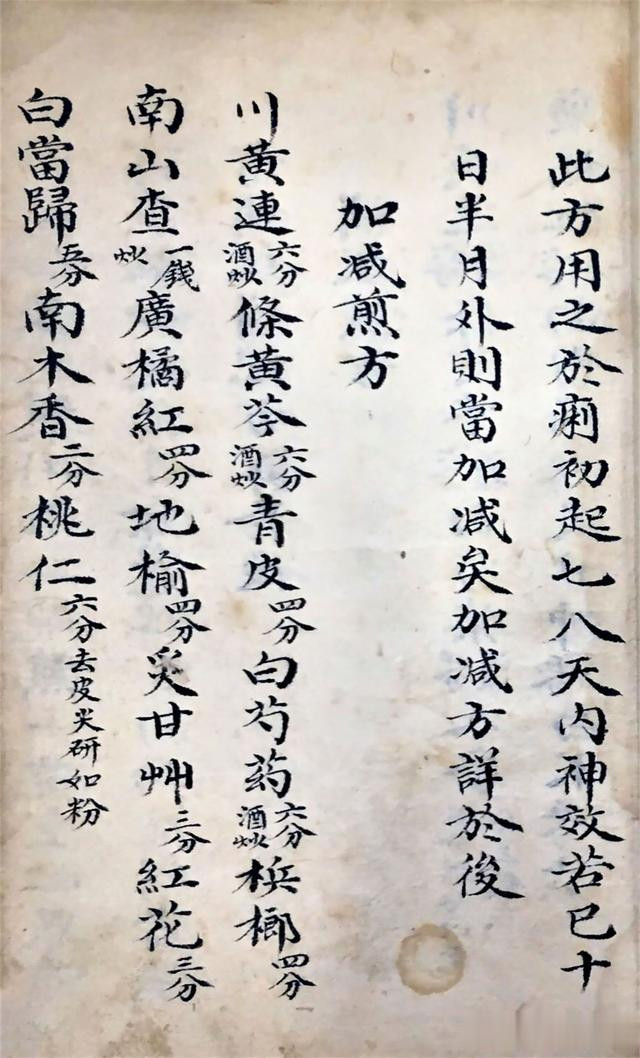 此方用之於痢初起七八天内神效若已十
日半月外則當加减矣加减方詳於後
加减煎方
川黄連六分酒炒條黄芩六分酒炒青皮四分白芍药六分酒炒梹榔四分
南山查一錢炒廣橘紅四分地榆四分炙甘艸三分紅花三分
白當歸五分南木香二分桃仁六分去皮尖研如粉